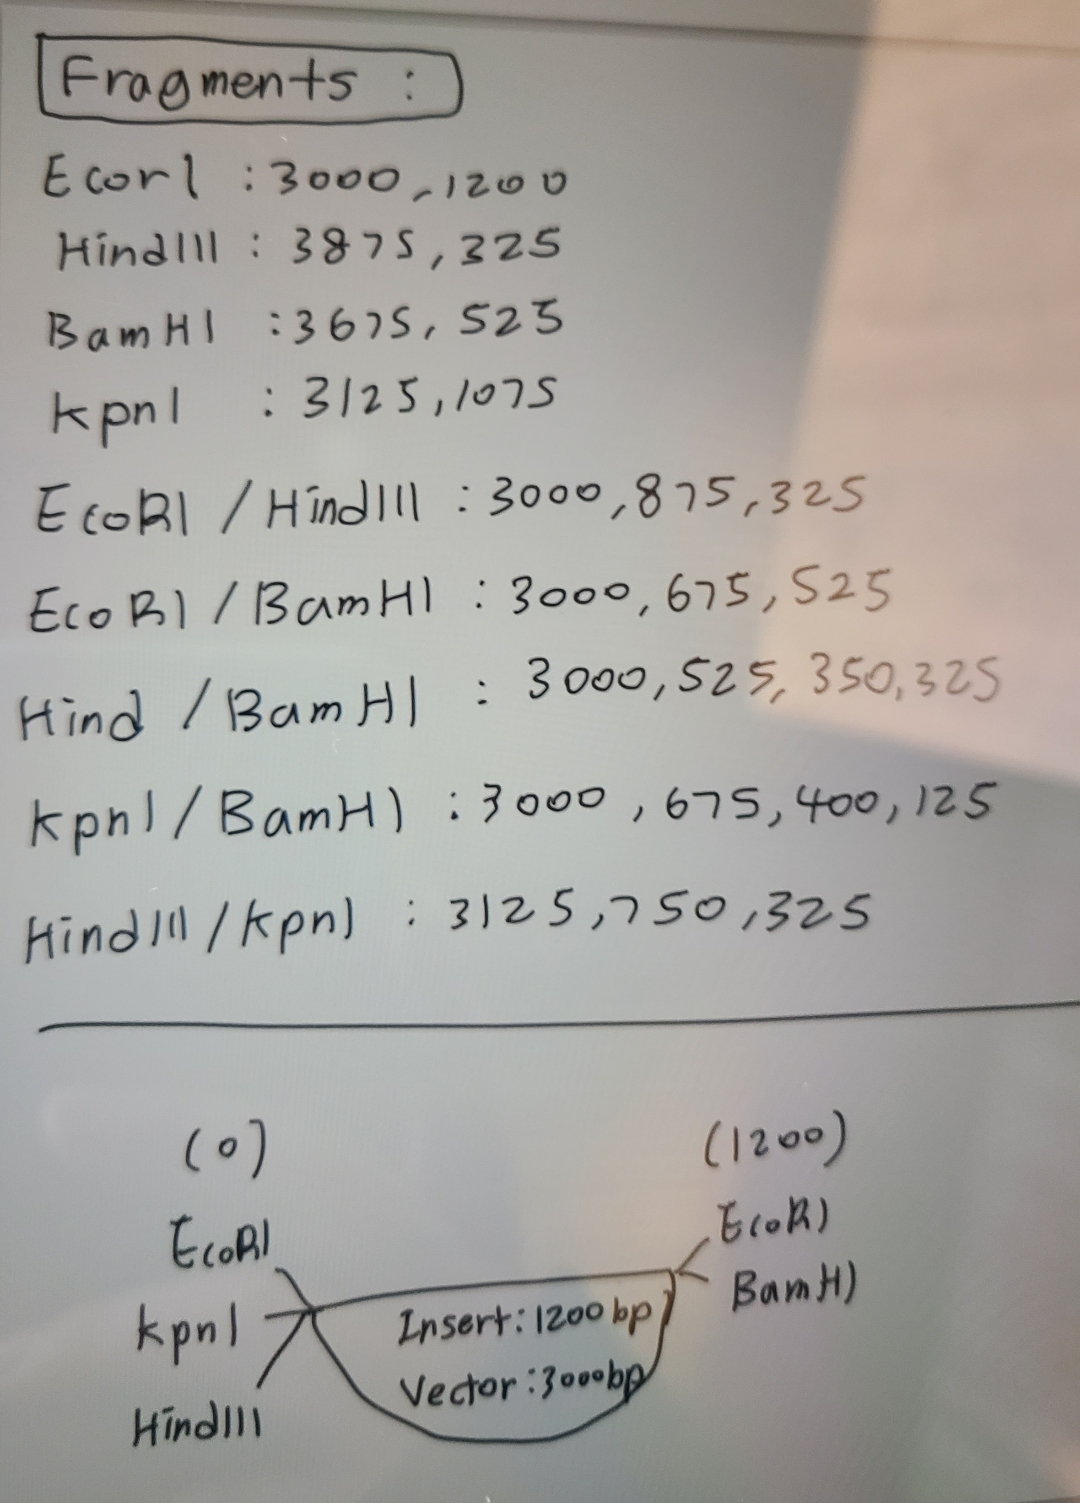 Fragments :
Ecor1 : 3000, 1200
HindIII : 3875, 325
BamH1 : 3675, 525
kpn1 : 3125, 1075
EcoR1 / HindIII : 3000, 875, 325
EcoR1 / BamH1 : 3000, 675, 525
Hind / BamH1 : 3000, 525, 350, 325
kpn1 / BamH1 : 3000, 675, 400, 125
HindIII / kpn1 : 3125, 750, 325
(0) (1200)
EcoR1 EcoR1
kpn1 BamH1
HindIII
Insert: 1200 bp
Vector: 3000bp